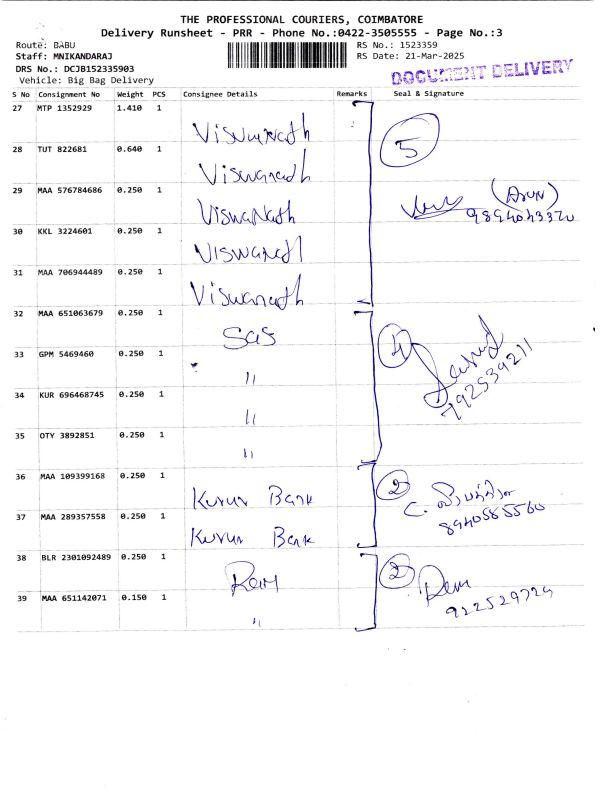 THE PROFESSIONAL COURIERS, COIMBATORE
Delivery Runsheet - PRR - Phone No.:0422-3505555 - Page No.:3
Route: BABU RS No.: 1523359
Staff: MNIKANDARAJ RS Date: 21-Mar-2025
DRS No.: DCJB152335903
Vehicle: Big Bag Delivery
DOCUMENT DELIVERY
S No Consignment No Weight PCS Consignee Details Remarks Seal & Signature
27 MTP 1352929 1.410 1 Viswanath
28 TUT 822681 0.640 1 Viswanath 5
29 MAA 576784686 0.250 1 Viswanath (Arun)
30 KKL 3224601 0.250 1 Viswanath
31 MAA 706944489 0.250 1 Viswanath
32 MAA 651063679 0.250 1 Sas
33 GPM 5469460 0.250 1 " 4
34 KUR 696468745 0.250 1 "
792539211
35 OTY 3892851 0.250 1 "
36 MAA 109399168 0.250 1 Kurur Bank 2
37 MAA 289357558 0.250 1 Kurur Bank 8940585560
38 BLR 2301092489 0.250 1 Rem 2
39 MAA 651142071 0.150 1 " 922529729